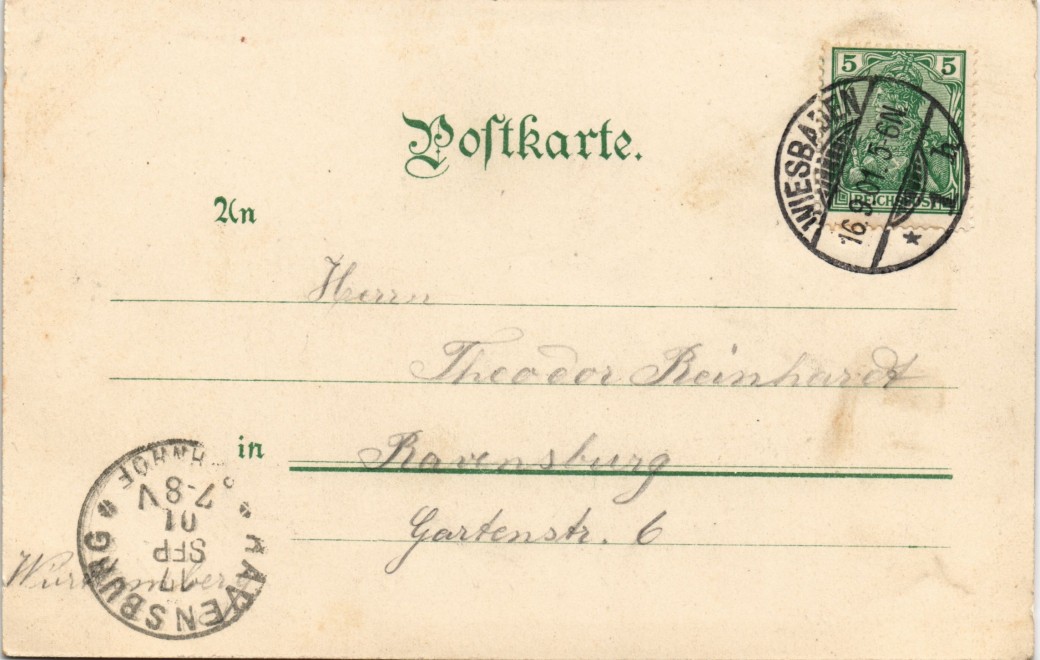 5 5
REICHSPOST
WIESBADEN
16.9.01. 5-6N.
*
Postkarte.
An
Herrn
Theodor Reinhardt
in Ravensburg
Gartenstr. 6
Württemberg
RAVENSBURG
17
SEP
01
7-8V